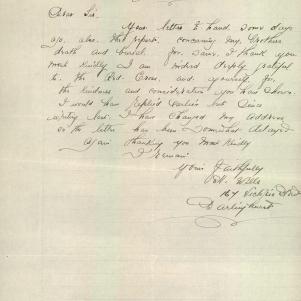 Dear Sir
Your letter to hand some days
ago also the report concerning my Brothers
death and burial. for same I thank you
most kindly I am indeed deeply grateful
to the Red Cross. and yourself for
the kindness and consideration you have shown.
I would have replied earlier but since
I have changed my address
so the letter has been somewhat delayed
Again thanking you most kindly
I remain
Yours faithfully
Wills
167 Victoria Street
Darlinghurst